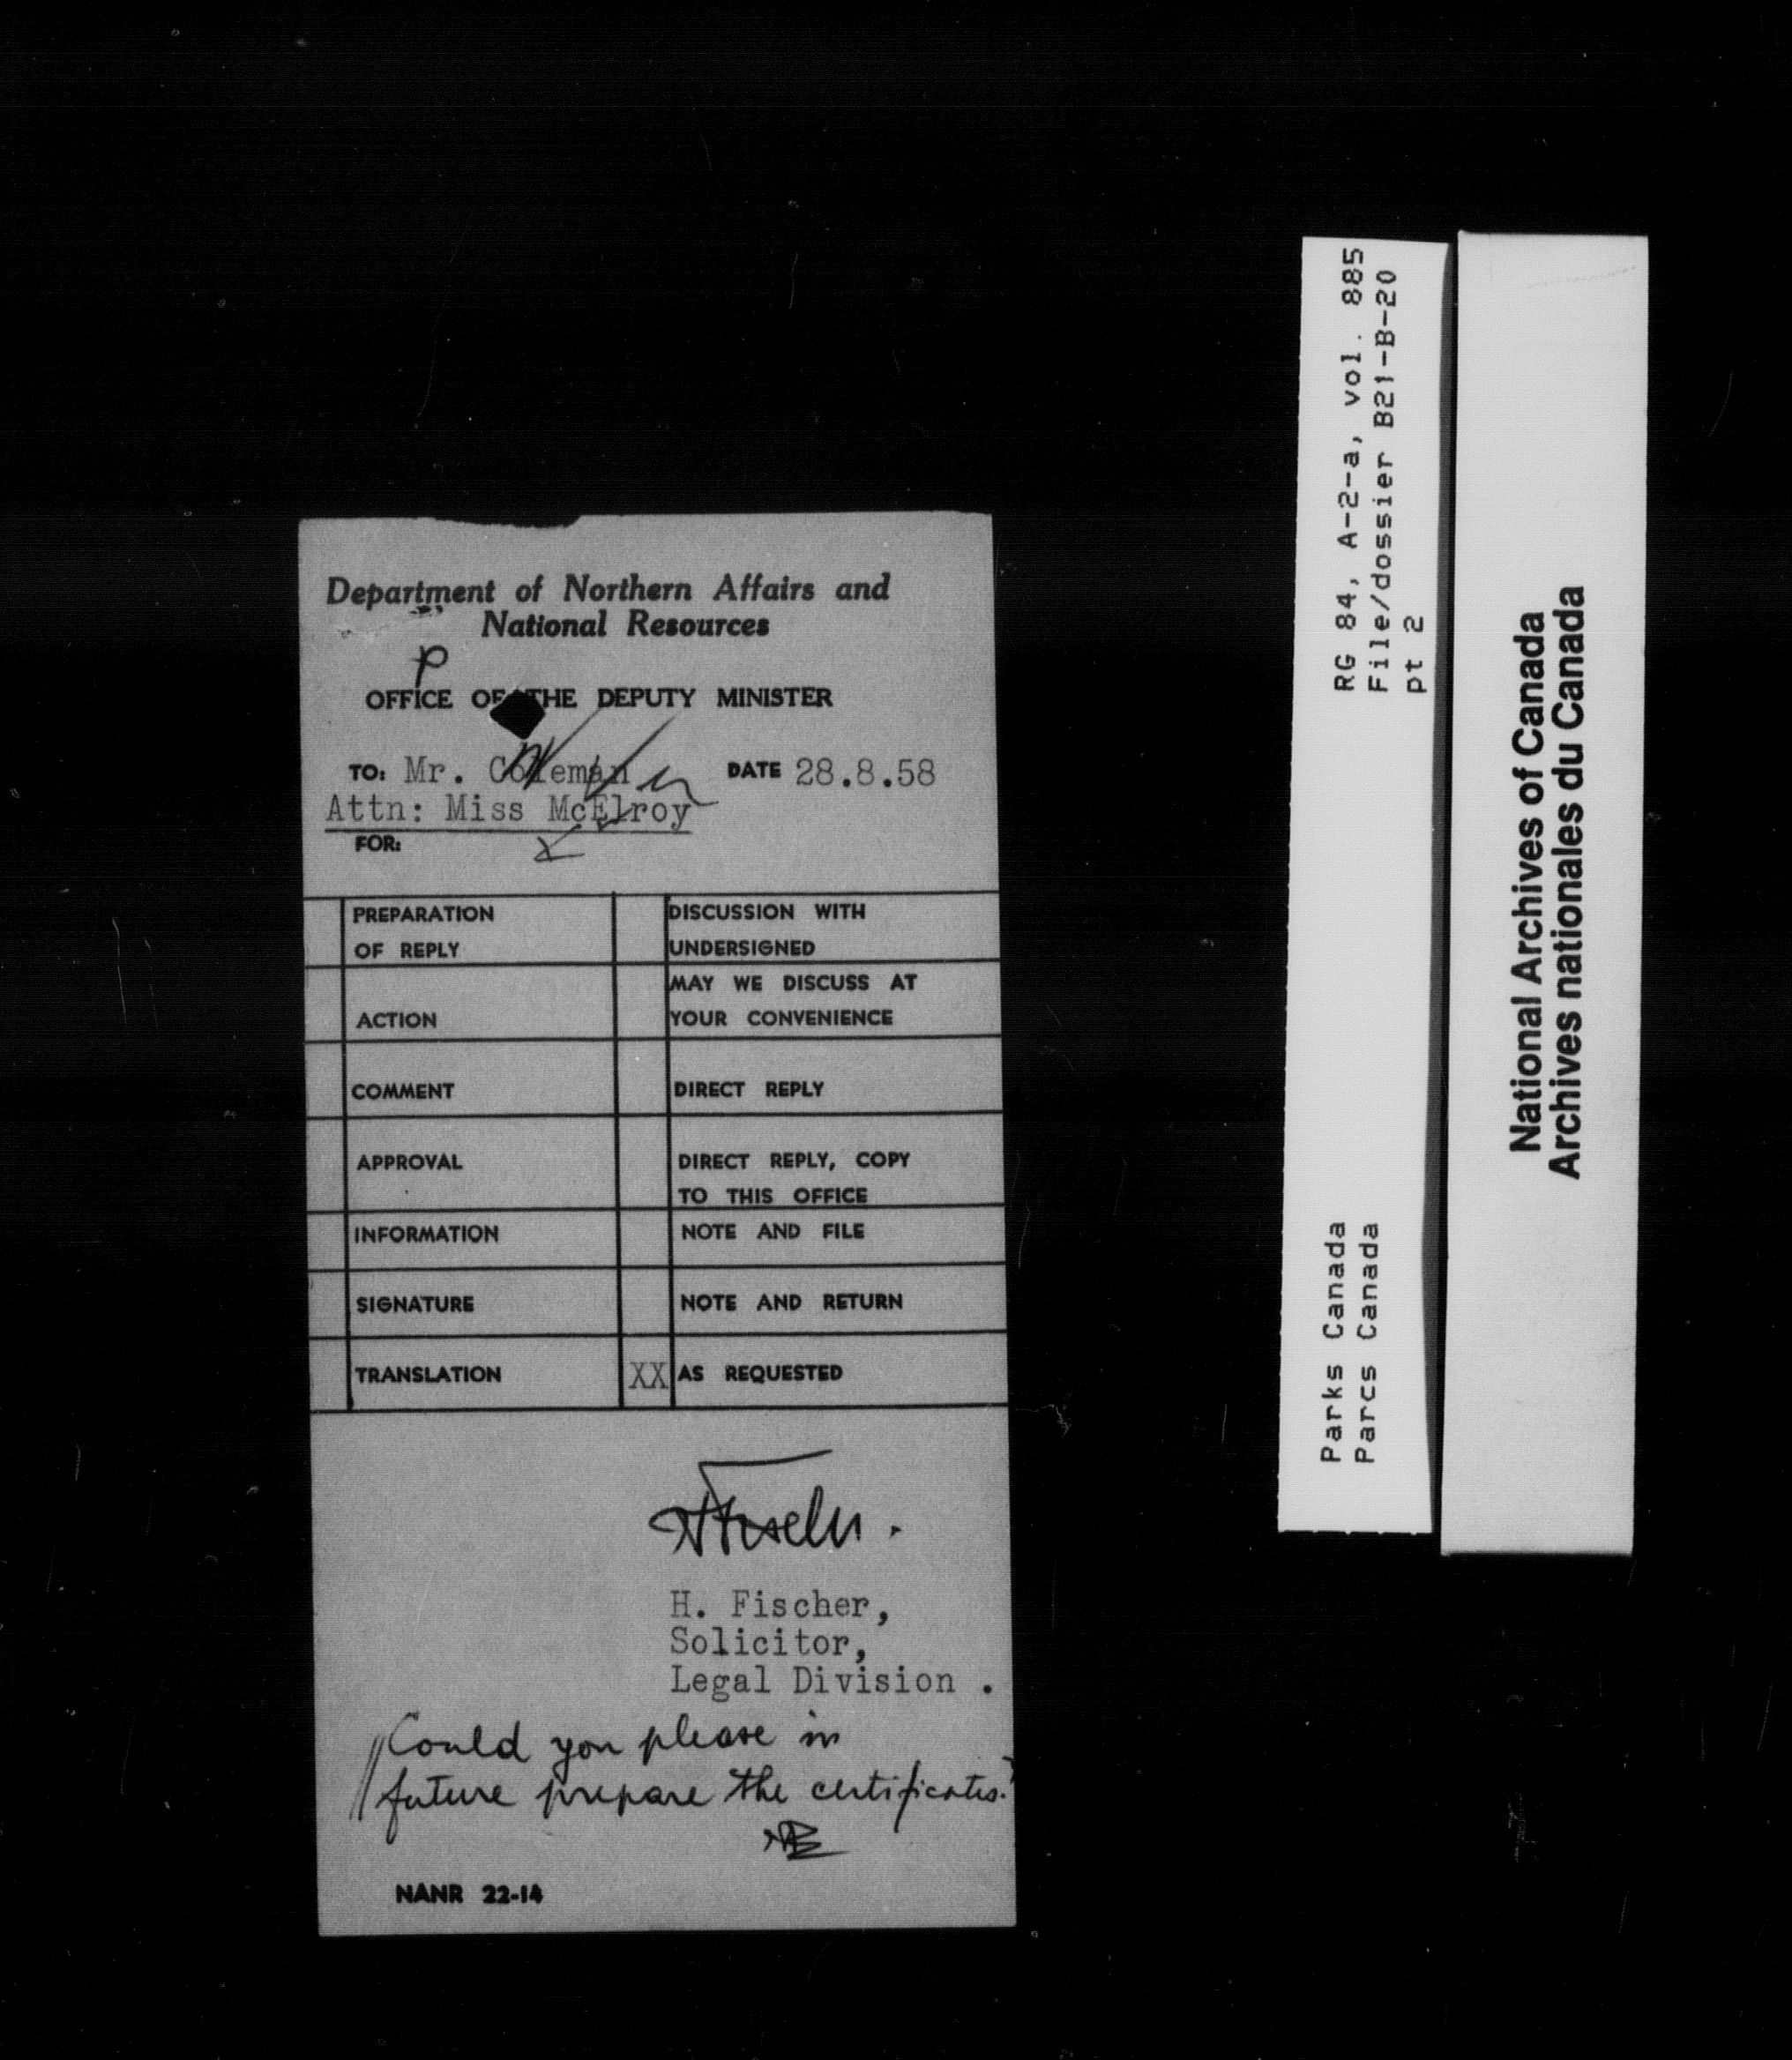 Department of Northern Affairs and
National Resources
P
OFFICE OF THE DEPUTY MINISTER
TO: Mr. Coleman DATE 28.8.58
Attn: Miss McElroy
FOR:
PREPARATION OF REPLY
DISCUSSION WITH UNDERSIGNED
ACTION
MAY WE DISCUSS AT YOUR CONVENIENCE
COMMENT
DIRECT REPLY
APPROVAL
DIRECT REPLY, COPY TO THIS OFFICE
INFORMATION
NOTE AND FILE
SIGNATURE
NOTE AND RETURN
TRANSLATION
XX AS REQUESTED
H. Fischer,
Solicitor,
Legal Division .
Could you please in
future prepare the certificates.?
NANR 22-14
Parks Canada
Parcs Canada
RG 84, A-2-a, vol. 885
File/dossier B21-B-20
pt 2
National Archives of Canada
Archives nationales du Canada